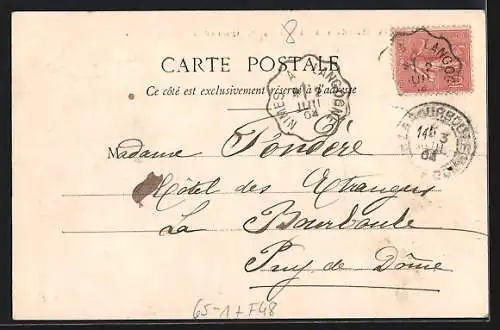 8
CARTE POSTALE
Ce côté est exclusivement réservé à l'adresse
NIMES A LANGOGNE
2
JUIN
04
LANGOG
2
JUIN
LA BOURBOULE
14 3
JUIN
04
Madame Pondère
Hôtel des Etrangers
La Bourboule
Puy de Dôme
65-1+F48